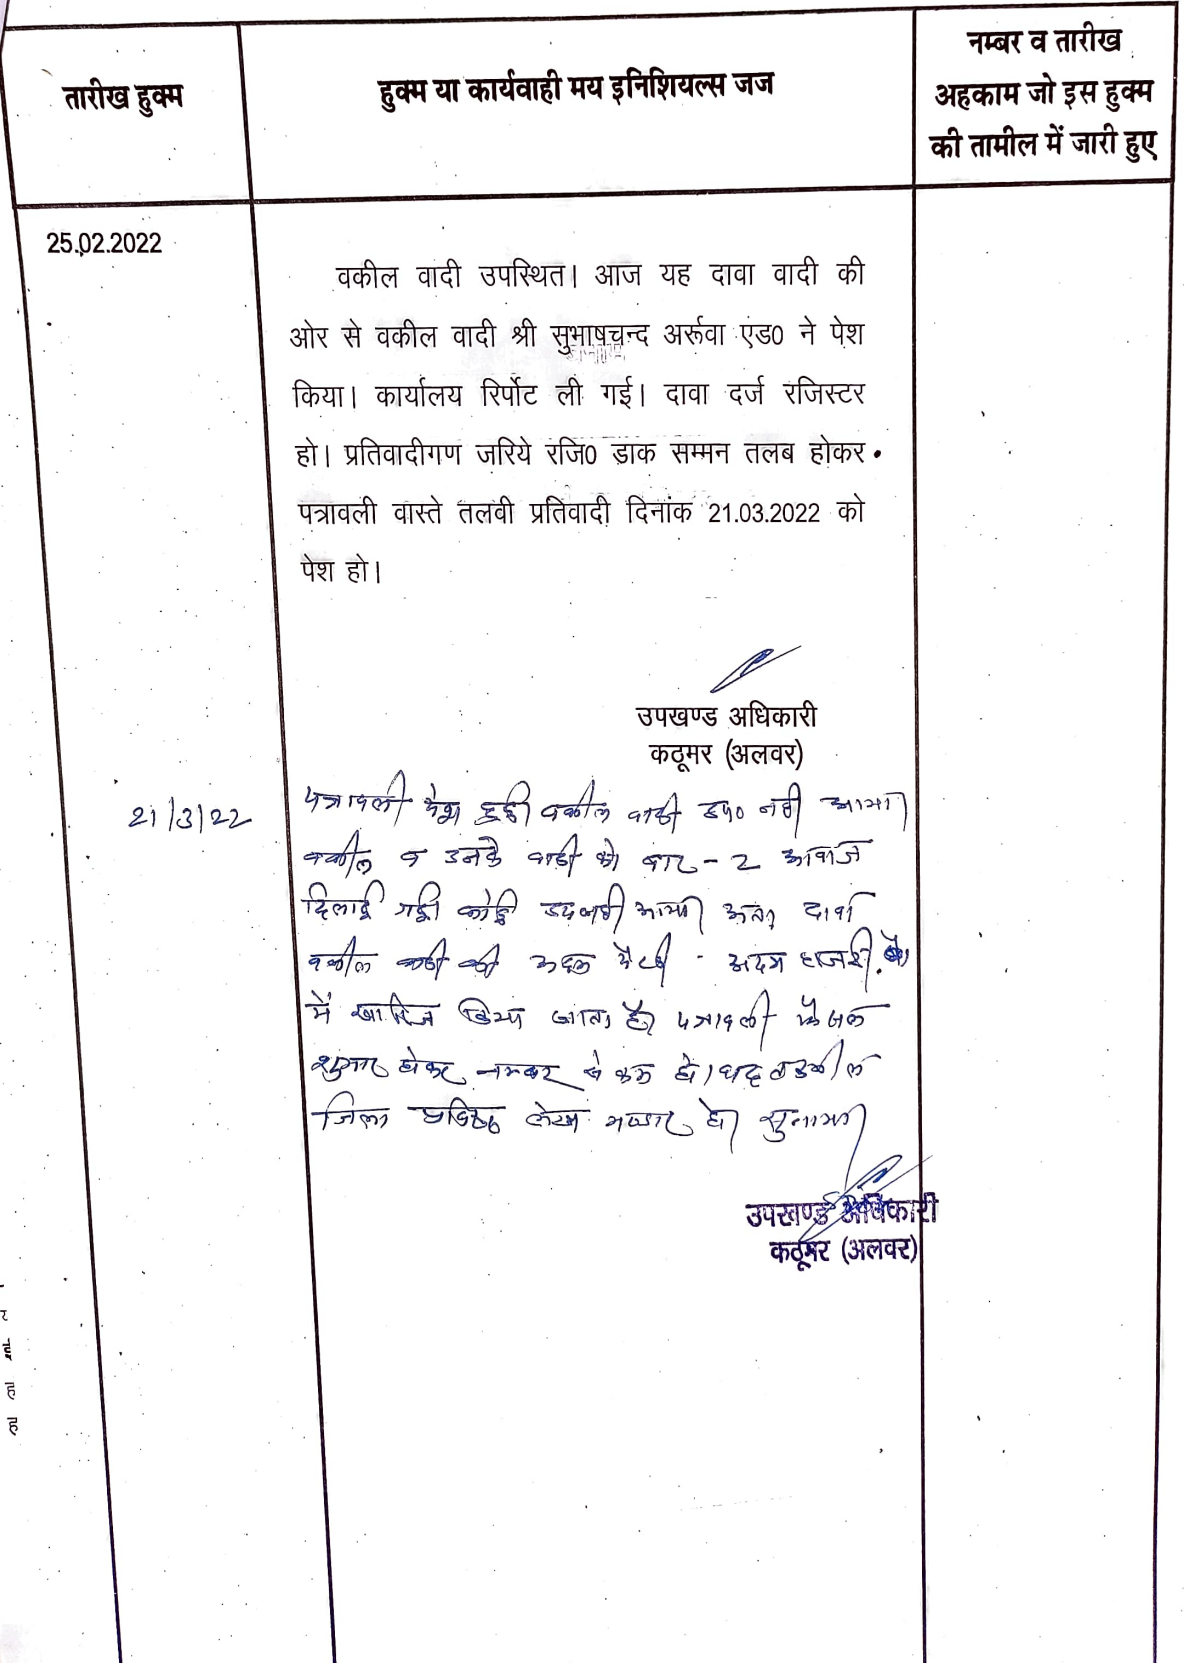 तारीख हुक्म
हुक्म या कार्यवाही मय इनिशियल्स जज
नम्बर व तारीख
अहकाम जो इस हुक्म
की तामील में जारी हुए
25.02.2022
वकील वादी उपस्थित। आज यह दावा वादी की
ओर से वकील वादी श्री सुभाषचन्द अर्रूवा एंड0 ने पेश
किया। कार्यालय रिर्पोट ली गई। दावा दर्ज रजिस्टर
हो। प्रतिवादीगण जरिये रजि0 डाक सम्मन तलब होकर
पत्रावली वास्ते तलवी प्रतिवादी दिनांक 21.03.2022 को
पेश हो।
उपखण्ड अधिकारी
कठूमर (अलवर)
21/3/22
पत्रावली पेश हुई वकील वादी उप० नही आया
वकील व उनके वादी को बार-2 आवाज
दिलाई गई कोई उप नही आया अतः दावा
वकील वादी की अदम पैरवी अदम हाजरी
में खारिज किया जाता है। पत्रावली फैसल
शुमार होकर नम्बर से कम हो। बाद
जिला लेखा हो सुनाया
उपखण्ड अधिकारी
कठूमर (अलवर)
र
ई
ह
ह